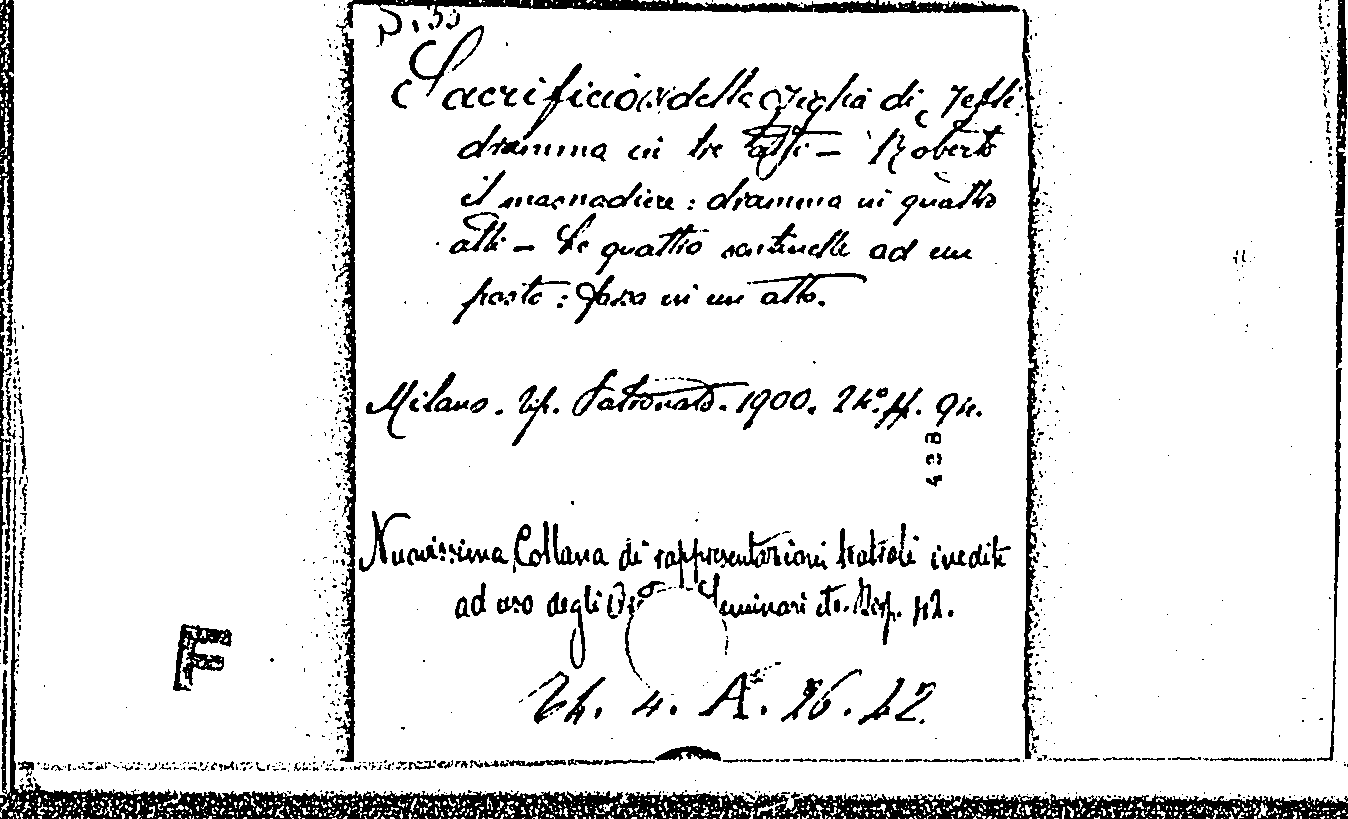 Sacrificio della figlia di Jefte:
dramma in tre atti – Roberto
il masnadiere: dramma in quattro
atti – Le quattro sentinelle ad un
posto: farsa in un atto.
Milano. Tip. Patronato. 1900. 24°. pp. 94.
428
Nuovissima Collana di rappresentazioni teatrali inedite
ad uso degli Seminari etc. Disp. 42.
F
4. A. 26. 42.